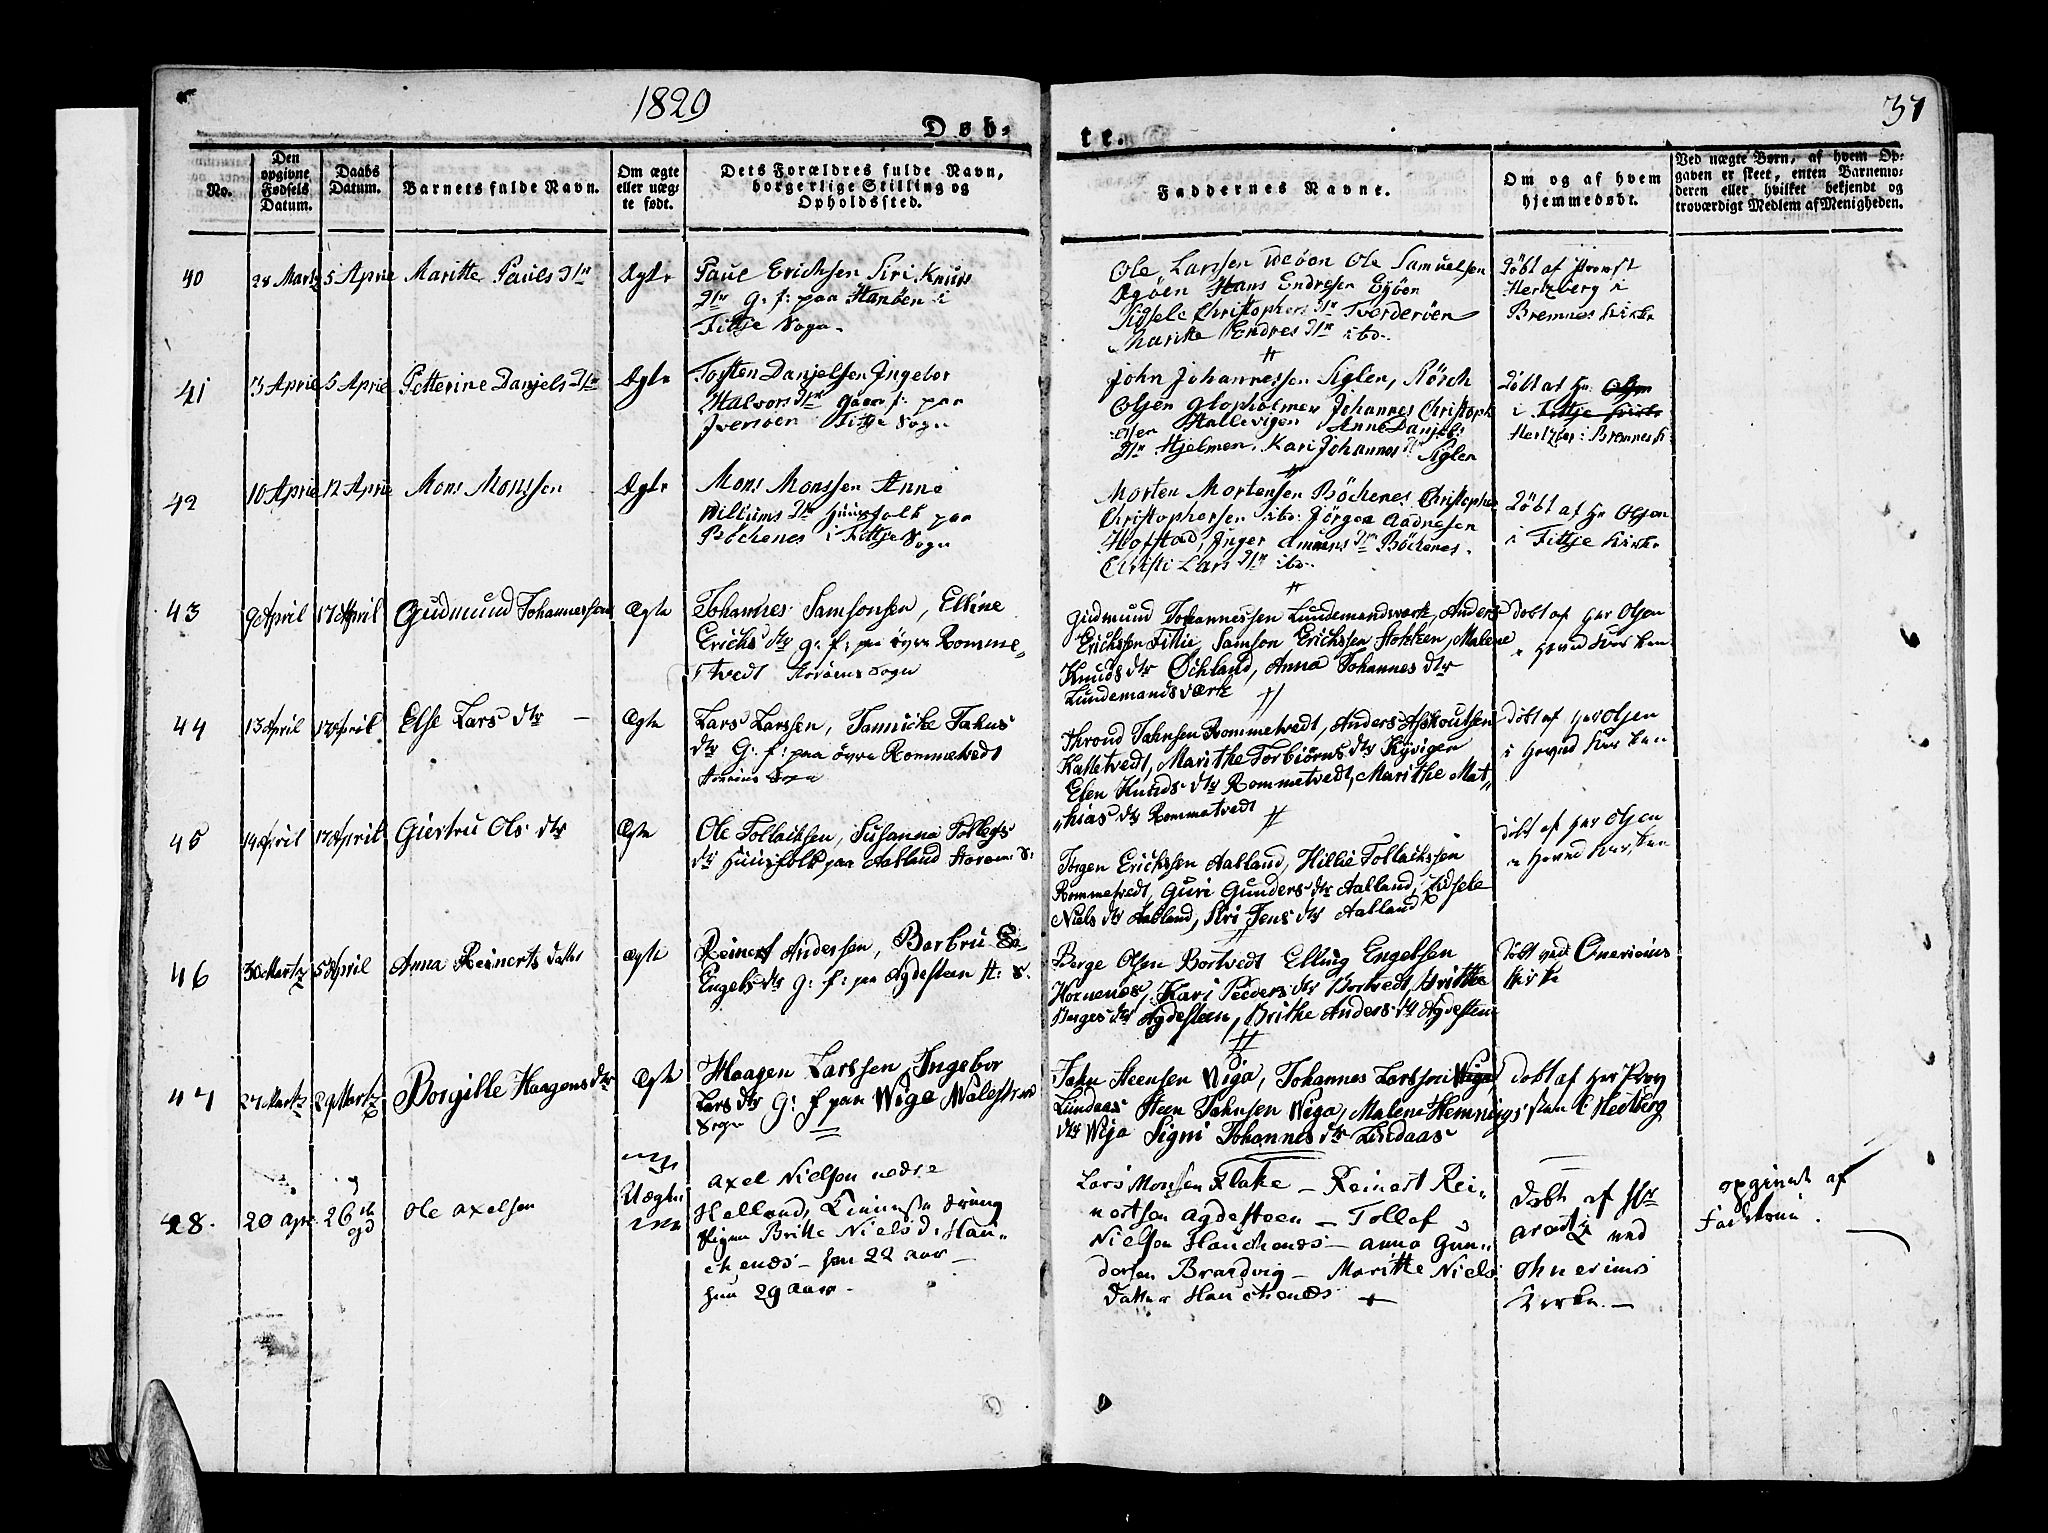 1829
37
Døb-
te.
No.
Den opgivne Fødsels Datum.
Daabs Datum.
Barnets fulde Navn.
Om ægte eller uæg-te født.
Dets Forældres fulde Navn, borgerlige Stilling og Opholdssted.
Faddernes Navne.
Om og af hvem hjemmedøbt.
Ved uægte Børn, af hvem Op-
gaven er skeet, enten Barnemo-
deren eller hvilket bekjendt og
troværdigt Medlem af Menigheden.
40
28 Martz
5 Aprie
Maritte Pauls Dtr
Ægte
Paul Erichsen Siri Knuds
Dtr g: f: paa Hanøen i
Fittje Sogn
Ole Larssen Ole Samuelsen
Agøen Hans Endresen Egøen
Sidsele Christophers Dtr Tverderøen
Maritte Endres Dtr ibd.
Døbt af Provst
Hertzberg i
Bremnes Kirke
41
3 Aprie
5 Aprie
Petterine Danjels Dtr
Ægte
Torsten Danjelsen Ingebor
Halvors Dtr gaard f: paa
Iversøen Fittje Sogn
John Johannessen Siglen, Rösch
Olsen Glopholmen Johannes Christoph
:osen Hallevigen Anne Danjels
Dtr Hjelmen, Kari Johannes Dtr Siglen
Døbt af Hr Olsen
i Fittje Kirke
Hertzber i Bremnes K
42
10 Aprie
12 Aprie
Mons Monssen
Ægte
Mons Monssen Anne
Willums Dtr Huusfolk paa
Böchenes i Fittje Sogn
Morten Mortensen Böchenes Christopher
Christophersen ibd: Jörgen Aadnesen
Hofstad, Inger Dtr Böchenes.
Christi Lars Dtr ibd.
Døbt af Hr Olsen
i Fittje Kirke
43
9 April
17 April
Gudmund Johannessen
Ægte
Johannes Samsonsen, Elline
Erichs dtr g: f: paa övre Romme-
tvedt Storøens Sogn
Gudmund Johannessen Lundemandsværk, Anders
Erichssen Fillie, Samson Erichssen Hokken, Malene
Knuds dtr Öchland, Anna Johannes dtr
Lundemandsværk
Döbt af Her Olsen
i Hoved Kirken
44
13 April
17 April
Else Lars dtr
Ægte
Lars Larssen, Jannicke Jahns
dtr G: f: paa övre Rommetvedt
Storøens Sogn
Thrond Jahnsen Rommetvedt, Anders Ashoutsen
Kalletvedt, Marithe Torbiörns dtr Kyvigen
Elen Knuds dtr Rommetvedt, Marithe Mat,,
,,hias dtr Rommetvedt
Döbt af Her Olsen
i Hoved Kirken
45
14 April
17 April
Giertru Ols dtr
Ægte
Ole Tollachsen, Susanna Tollegs
dtr Huusfolk paa Aalland Storøens S:
Jörgen Erichssen Aalland, Hillie Tollachssen
Rommetvedt, Guri Gunders dtr Aalland, Sidsele
Niels dtr Aalland, Siri Jens dtr Aalland
Döbt af Her Olsen
i Hoved Kirken
46
30 Martz
5 April
Anna Reinerts datter
Ægte
Reinert Andersen, Barbru
Engels dtr g: f: paa Agdesteen St: S.
Berge Olsen Bortvedt Elling Engelsen
Hornenes, Kari Peeders dtr Bortvedt, Brithe
Berges dtr Agdesteen, Brithe Anders dtr Agdesteen
Döbt ved Onarioius
Kirke
47
27 Martz
29 Martz
Borgille Haagens dtr
Ægte
Haagen Larssen, Ingebor
Lars dtr G: f paa Wiga Walestrand
Sogn
Jahn Steensen Wiga, Johannes Larssen Wiga
Lundaas Steen Jahnsen Wiga, Malene Hemnings
dtr Wiga Signi Johannes dtr Lindaas
Döbt af Her Prov
sten C. Hertberg
48.
20 Apr.
26 de
Ole Axelsen
Uægte
Axel Nielsen nedre
Helland, Drung
Pigen Britte Niels D: Hau-
chenæs - han 22 aar -
hun 29 aar -
Lars Monsen Flake - Reinert Rei-
nertsen Agdesteen - Tollef
Nielsen Hauchenæs - Anna Gun-
dersen Brandvig - Maritte Niels
Datter Hauchenæs
Døbt af Hr
ved
Ohnerims
Kirke. -
opgivet af
Faderen.